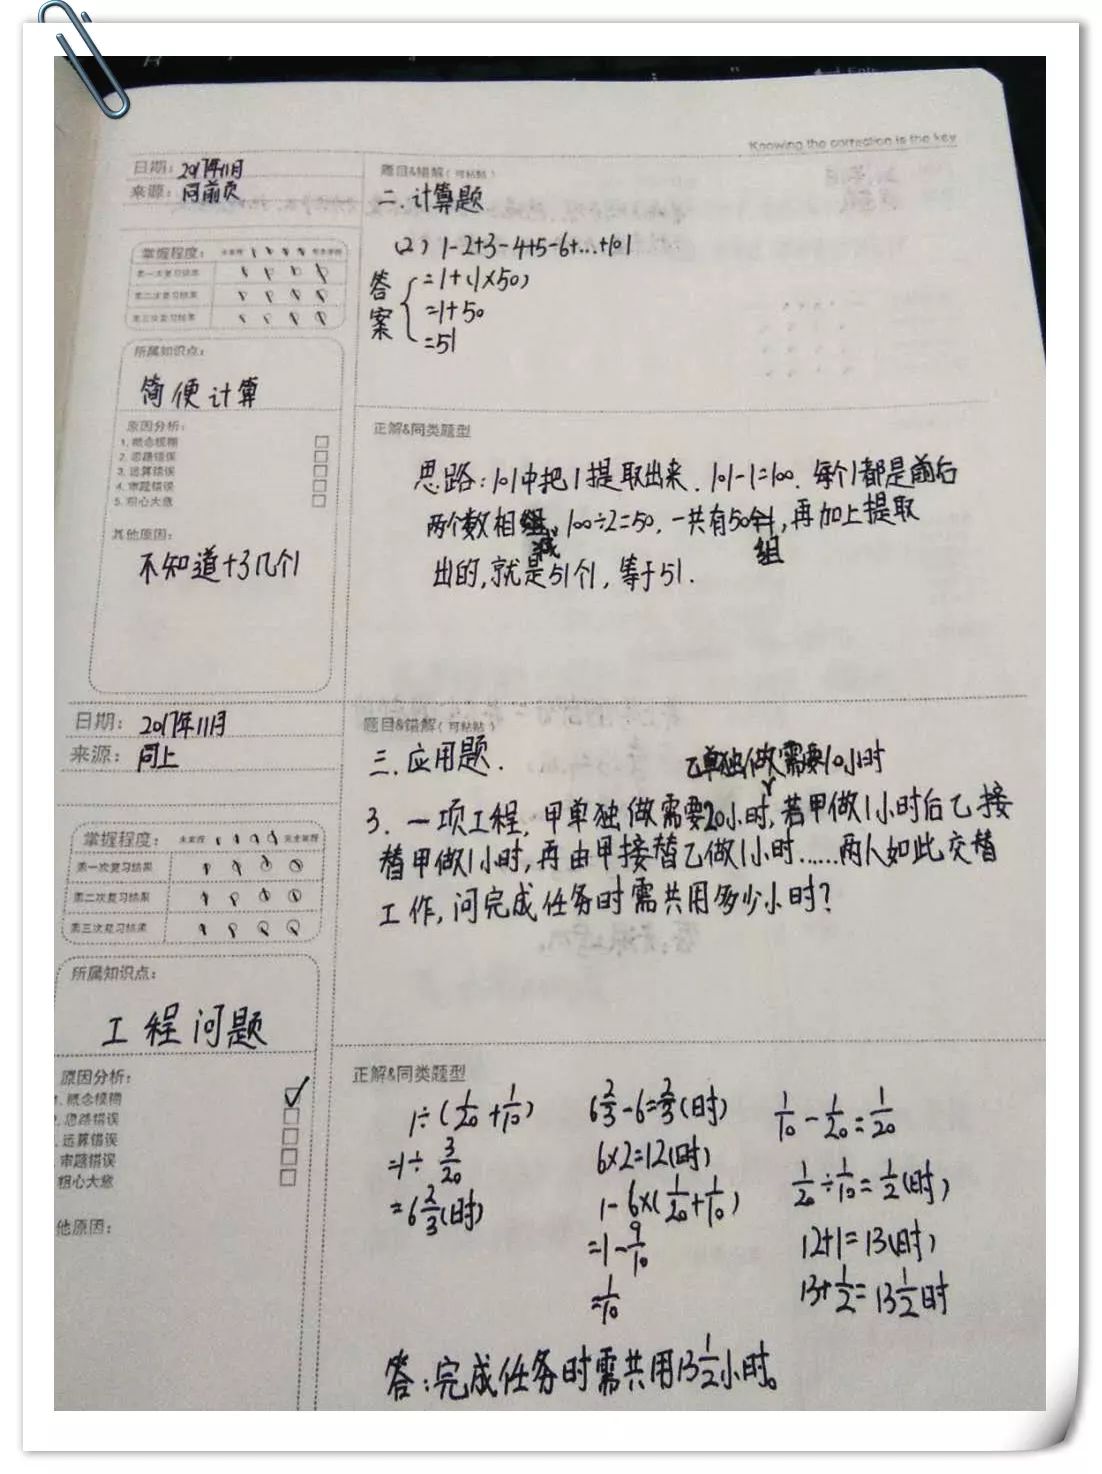 Knowing the correction is the key
日期：2017年11月
来源：同前页
题目&错解（可粘贴）
二.计算题
（2）1-2+3-4+5-6+...+101
答案
=1+（1×50）
=1+50
=51
掌握程度：
未掌握
完全掌握
第一次复习结果
第二次复习结果
第三次复习结果
所属知识点：
简便计算
原因分析：
1. 概念模糊
2. 思路错误
3. 运算错误
4. 审题错误
5. 粗心大意
其他原因：
不知道+3几个1
正解&同类题型
思路：101中把1提取出来.101-1=100.每个1都是前后
两个数相减,100÷2=50.一共有50组,再加上提取
出的,就是51个1,等于51.
日期：2017年11月
来源：同上
题目&错解（可粘贴）
三.应用题.
乙单独做需要10小时
3.一项工程,甲单独做需要20小时,若甲做1小时后乙接
替甲做1小时,再由甲接替乙做1小时……两人如此交替
工作,问完成任务时需共用多少小时?
掌握程度：
未掌握
完全掌握
第一次复习结果
第二次复习结果
第三次复习结果
所属知识点：
工程问题
原因分析：
1. 概念模糊
2. 思路错误
运算错误
审题错误
粗心大意
他原因：
正解&同类题型
1÷(1/20+1/10)
=1÷3/20
=6 2/3(时)
6 2/3-6=2/3(时)
6×2=12(时)
1-6×(1/20+1/10)
=1-9/10
=1/10
1/10-1/20=1/20
1/20÷1/10=1/2(时)
12+1=13(时)
13+1/2=13 1/2时
答：完成任务时需共用13 1/2小时。